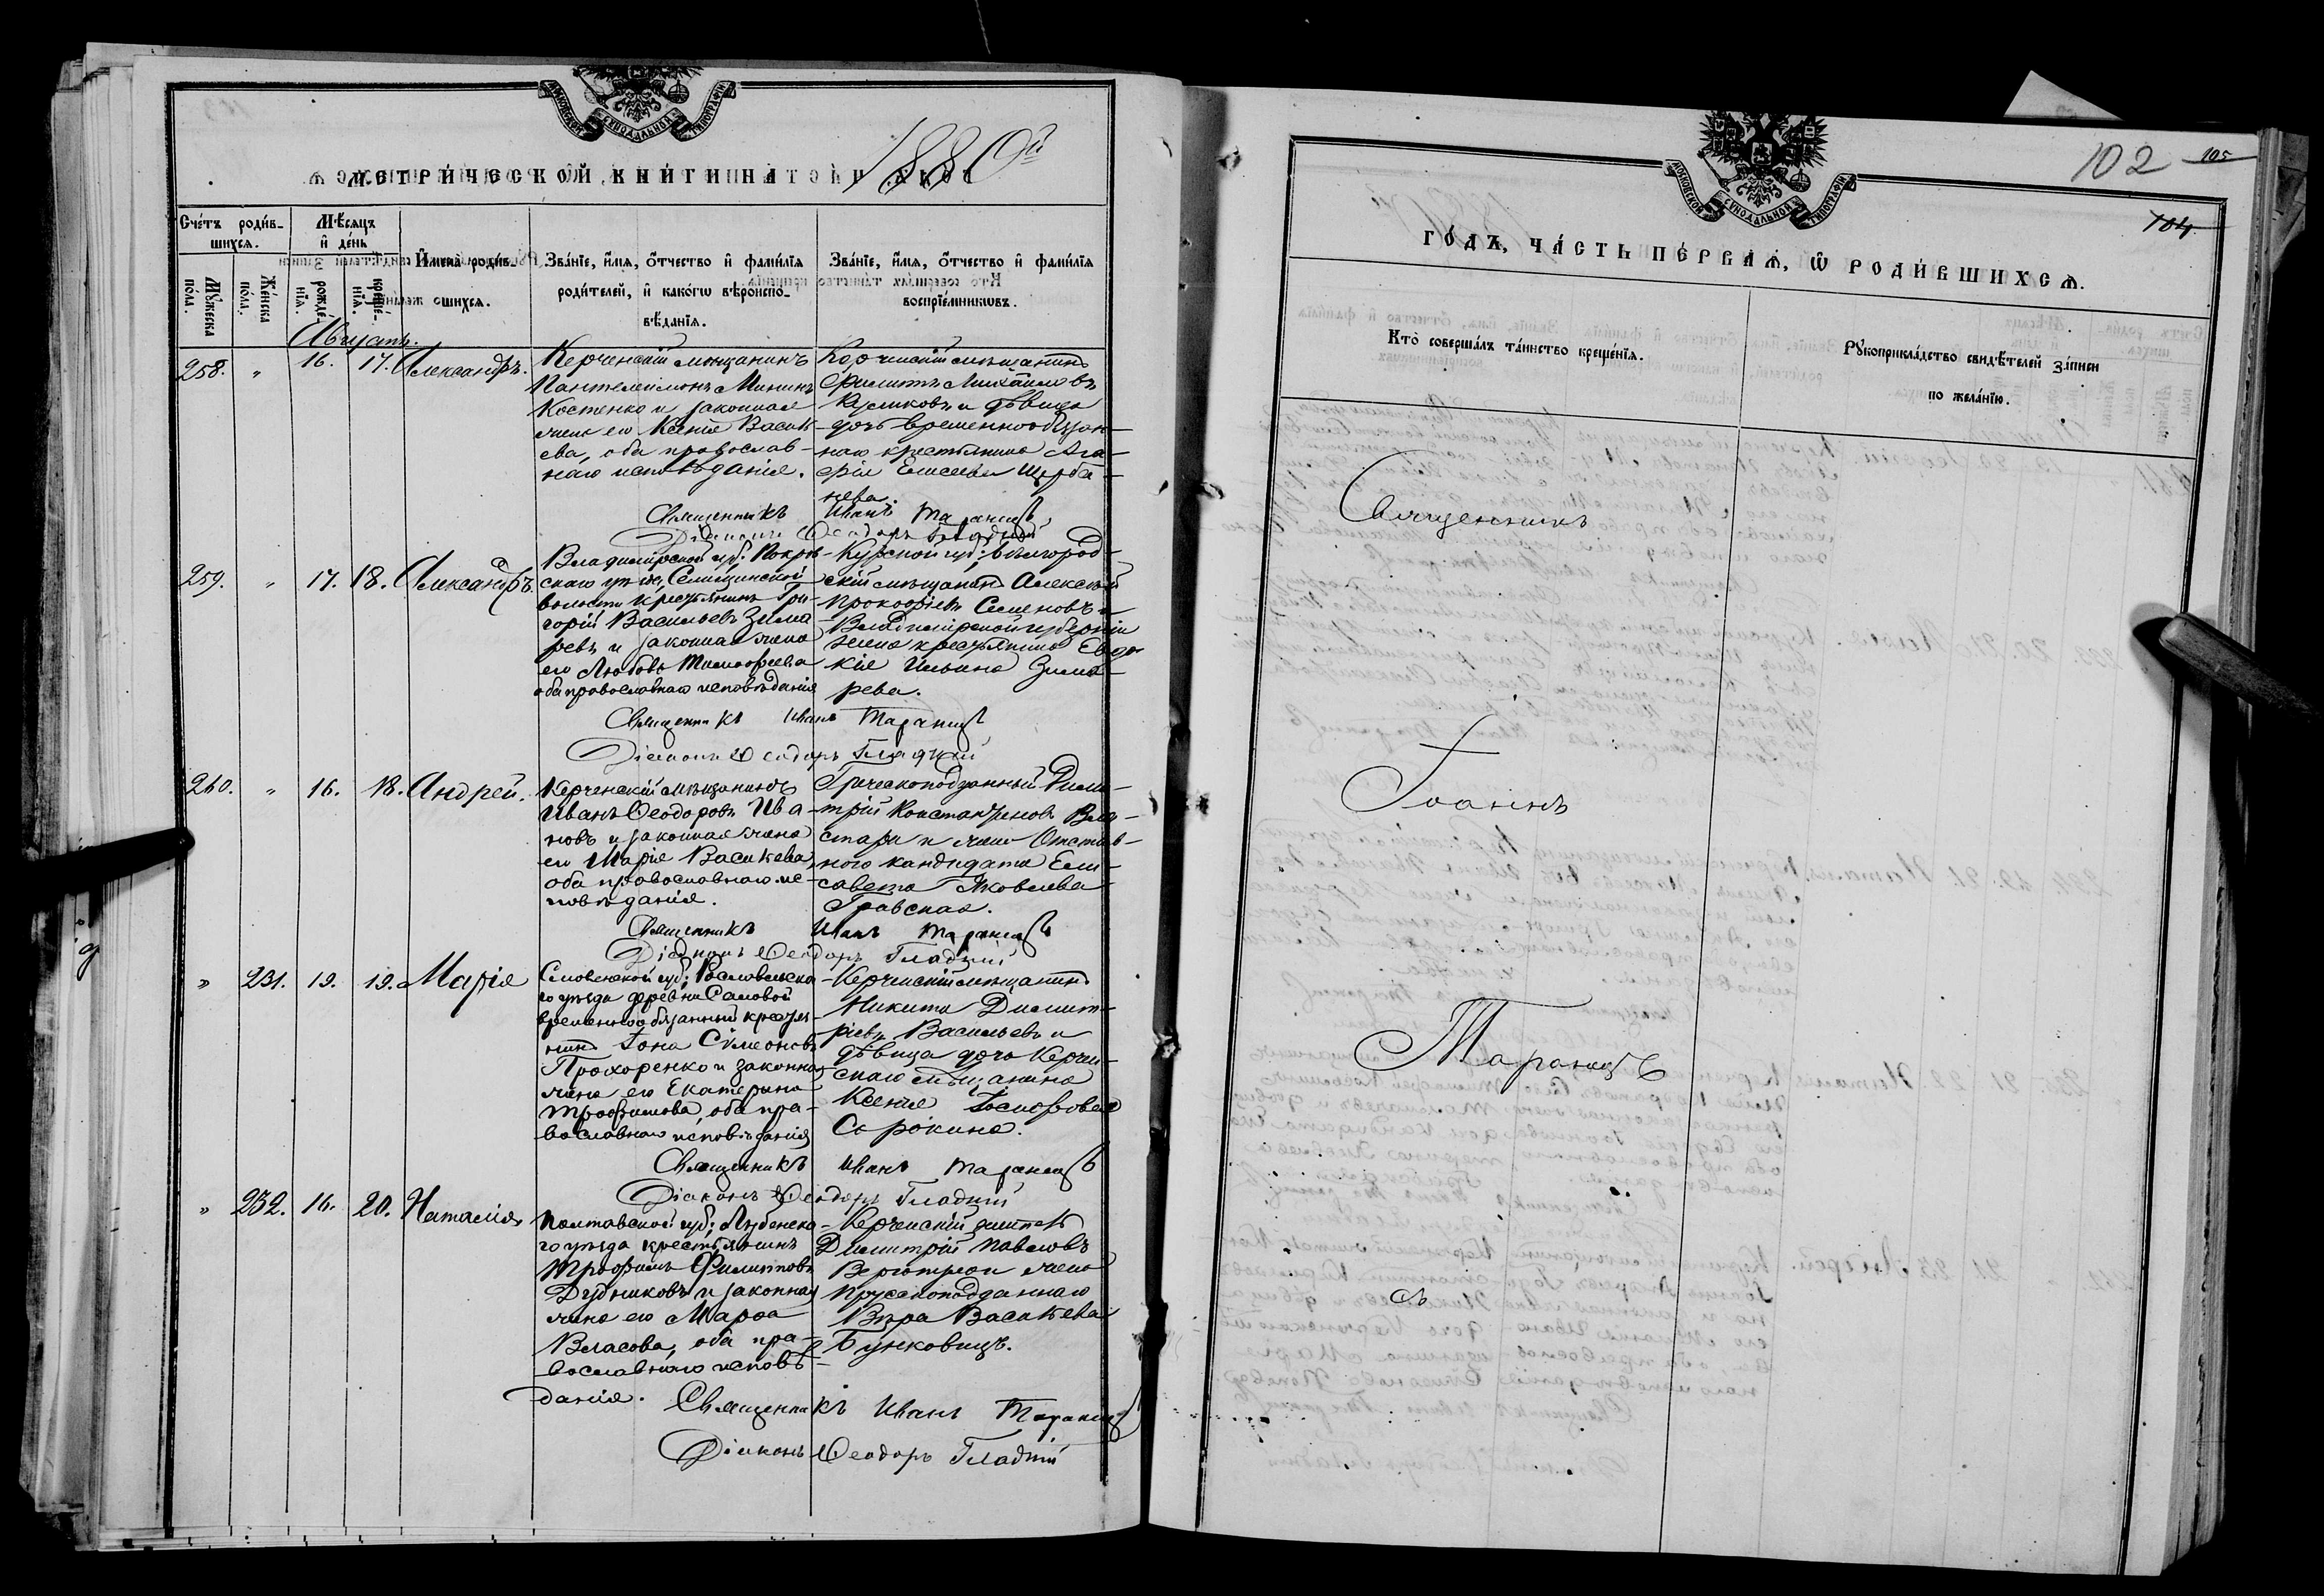 МОСКОВСКОЙ СѴНОДАЛЬНОЙ ТИПОГРАФІИ
МЕТРИЧЕСКОЙ КНИГИ НА 1880й
Счетъ родив-
шихся.
Мужеска пола.
Женска пола.
Мѣсяцъ
и день
рожде-
нія.
креще-
нія.
Имена родив-
шихся.
Званіе, имя, отчество и фамилія
родителей, и какогѡ вѣроиспо-
вѣданія.
Званіе, имя, отчество и фамилія
воспріемникѡвъ.
Августъ.
258. " 16. 17. Александръ.
Керченскій мѣщанинъ
Пантелеимонъ Мининъ
Костенко и законная
жена его Ксенія Василь-
ева, оба православ-
наго исповѣданія.
Керченскій мѣщанинъ
Филиппъ Михайловъ
Куликовъ и дѣвица
дочь временнообязан-
наго крестьянина Ага-
фія Елисеева Щерба-
нева.
Священникъ Иванъ Таранецъ
Діаконъ Ѳеодоръ Гладкій
259. " 17. 18. Александръ.
Владимірской губ; Покров-
скаго уѣзда,
волости крестьянинъ Гри-
горій Васильевъ Зима-
ревъ и законная жена
его Любовь Тимофеева
оба православнаго исповѣданія
Курской губ; Бѣлгород-
скій мѣщанинъ Алексѣй
Прокофіевъ Семеновъ и
Владимірской губерніи
жена крестьянина Евдо-
кія Ильина Зима-
рева.
Священникъ Иванъ Таранецъ
Діаконъ Ѳеодоръ Гладкій
260. " 16. 18. Андрей.
Керченскій мѣщанинъ
Иванъ Ѳеодоровъ Ива-
новъ и законная жена
его Марія Васильева,
оба православнаго ис-
повѣданія.
Греческоподданный Дими-
трій Константиновъ
и жена Отстав-
ного кандидата Ели-
савета Яковлева
Гравская.
Священникъ Иванъ Таранецъ
Діаконъ Ѳеодоръ Гладкій
" 231. 19. 19. Марія
Смоленской губ; Рославльска-
го уѣзда деревни Самовой
временнообязанный крестья-
нинъ Іона Сѵмеоновъ
Прохоренко и законная
жена его Екатерина
Трофимова, оба пра-
вославнаго исповѣданія
Керченскій мѣщанинъ
Никита Димит-
ріевъ Васильевъ и
дѣвица дочь Керчен-
скаго мѣщанина
Ксенія Іосифова
Сорокина.
Священникъ Иванъ Таранецъ
Діаконъ Ѳеодоръ Гладкій
" 232. 16. 20. Наталія
Полтавской губ; Лубенска-
го уѣзда крестьянинъ
Трофимъ Филиповъ
Дудниковъ и законная
жена его Марфа
Власова, оба пра-
вославнаго исповѣ-
данія.
Керченскій
Димитрій Павловъ
и жена
Прусскоподданнаго
Вѣра Васильева
Бунковицъ.
Священникъ Иванъ Таранецъ
Діаконъ Ѳеодоръ Гладкій
102
105
104
МОСКОВСКОЙ СѴНОДАЛЬНОЙ ТИПОГРАФІИ
ГОДЪ, ЧАСТЬ ПЕРВАЯ, Ѡ РОДИВШИХСЯ.
Кто совершалъ таинство крещенія.
Рукоприкладство свидѣтелей записи
по желанію.
Священникъ
Іоаннъ
Таранецъ